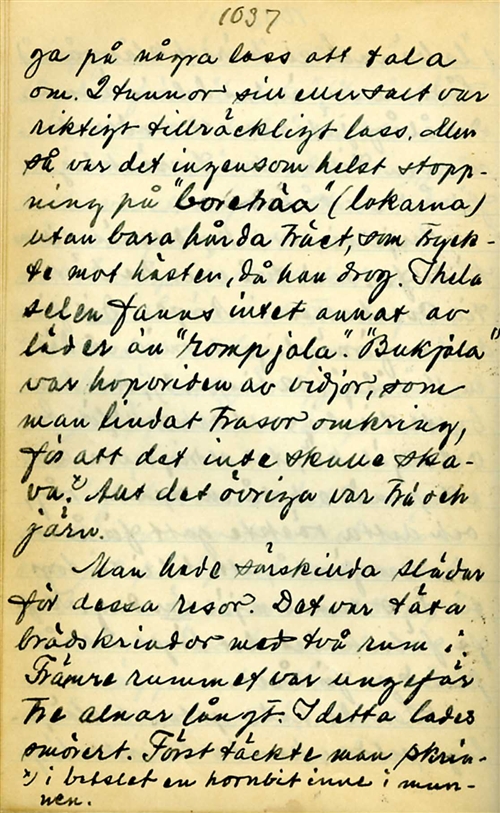 1037
ga på några lass att tala
om. 2 tunnor sill eller salt var
riktigt tillräckligt lass. Men
så var det ingensom helst stopp-
ning på "boreträa" (lokarna)
utan bara hårda träet, som tryck-
te mot hästen, då han drog. I hela
selen fanns intet annat av
läder än "rompjola". "Bukjola"
var hopvriden av vidjor, som
man lindat trasor omkring,
för att det inte skulle ska-
va. x) Allt det övriga var trä och
järn.
Man hade särskilda slädar
för dessa resor. Det var täta
brädskrindor med två rum i.
Främre rummet var ungefär
tre alnar långt. I detta lades
smöret. Först täckte man skrin-
x) i betslet en hornbit inne i mun-
nen.